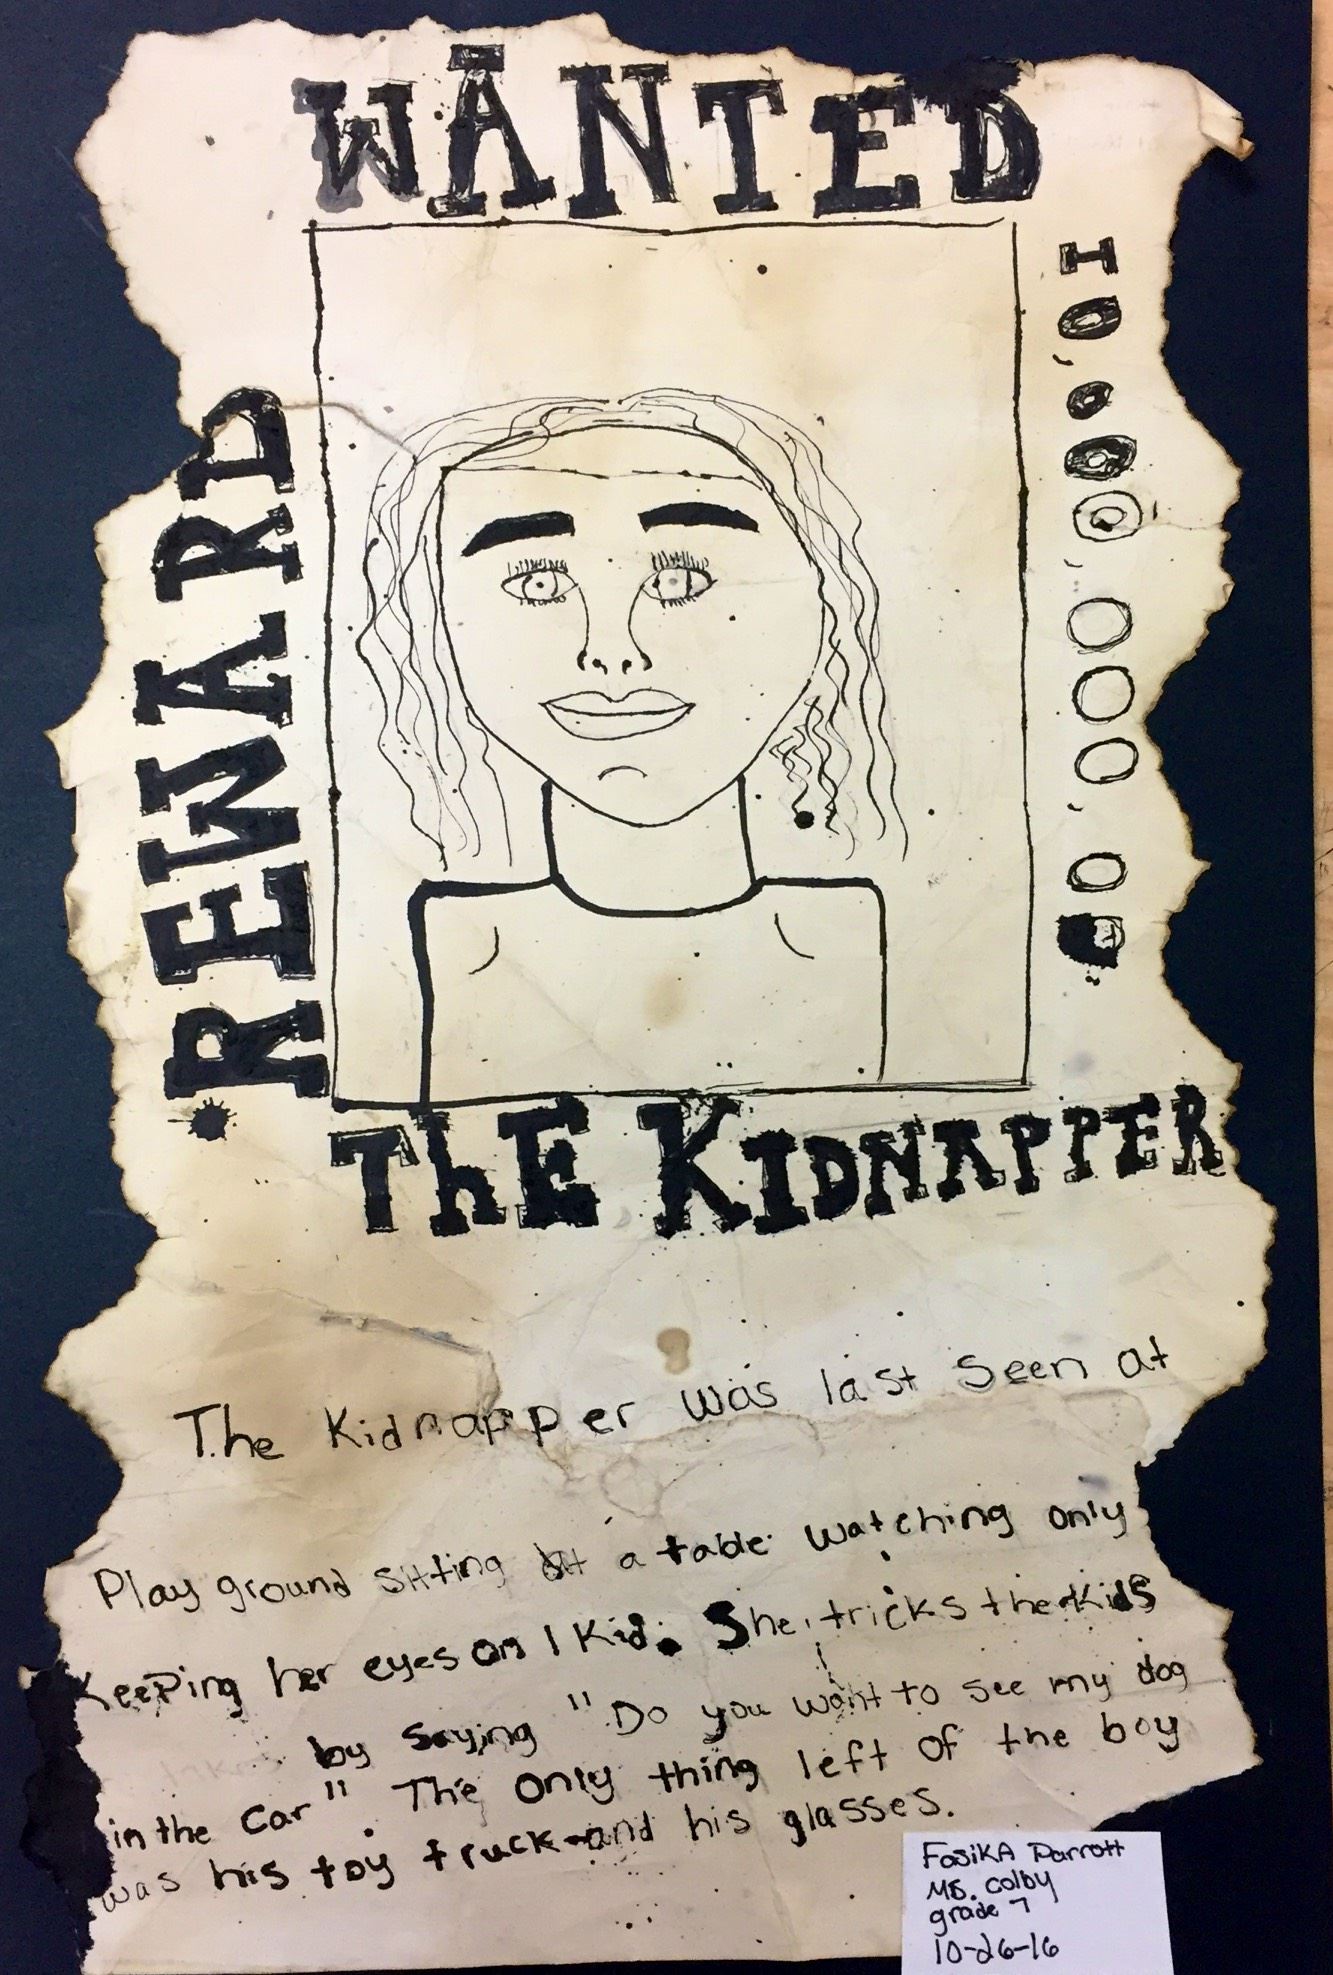 WANTED
REWARD
10,000,000,00
ThE KIDNAPPER
The Kidnapper was last seen at
Play ground sitting at a table watching only
Keeping her eyes on 1 Kid. She tricks the Kids
by saying "Do you want to see my dog
in the car" The only thing left of the boy
was his toy truck and his glasses.
FasiKA Parrott
MS. Colby
grade 7
10-26-16